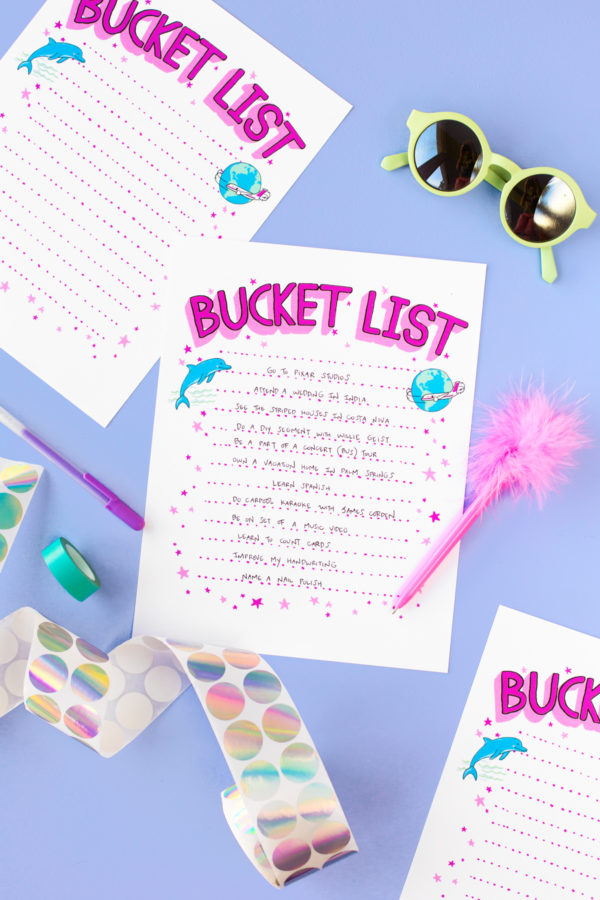 BUCKET LIST
BUCKET LIST
GO TO PIXAR STUDIOS
ATTEND A WEDDING IN INDIA
SEE THE STRIPED HOUSES IN COSTA NOVA
DO A DIY SEGMENT WITH WILLIE GEIST
BE A PART OF A CONCERT (BUS) TOUR
OWN A VACATION HOME IN PALM SPRINGS
LEARN SPANISH
DO CARPOOL KARAOKE WITH JAMES CORDEN
BE ON SET OF A MUSIC VIDEO
LEARN TO COUNT CARDS
IMPROVE MY HANDWRITING
NAME A NAIL POLISH
BUCK